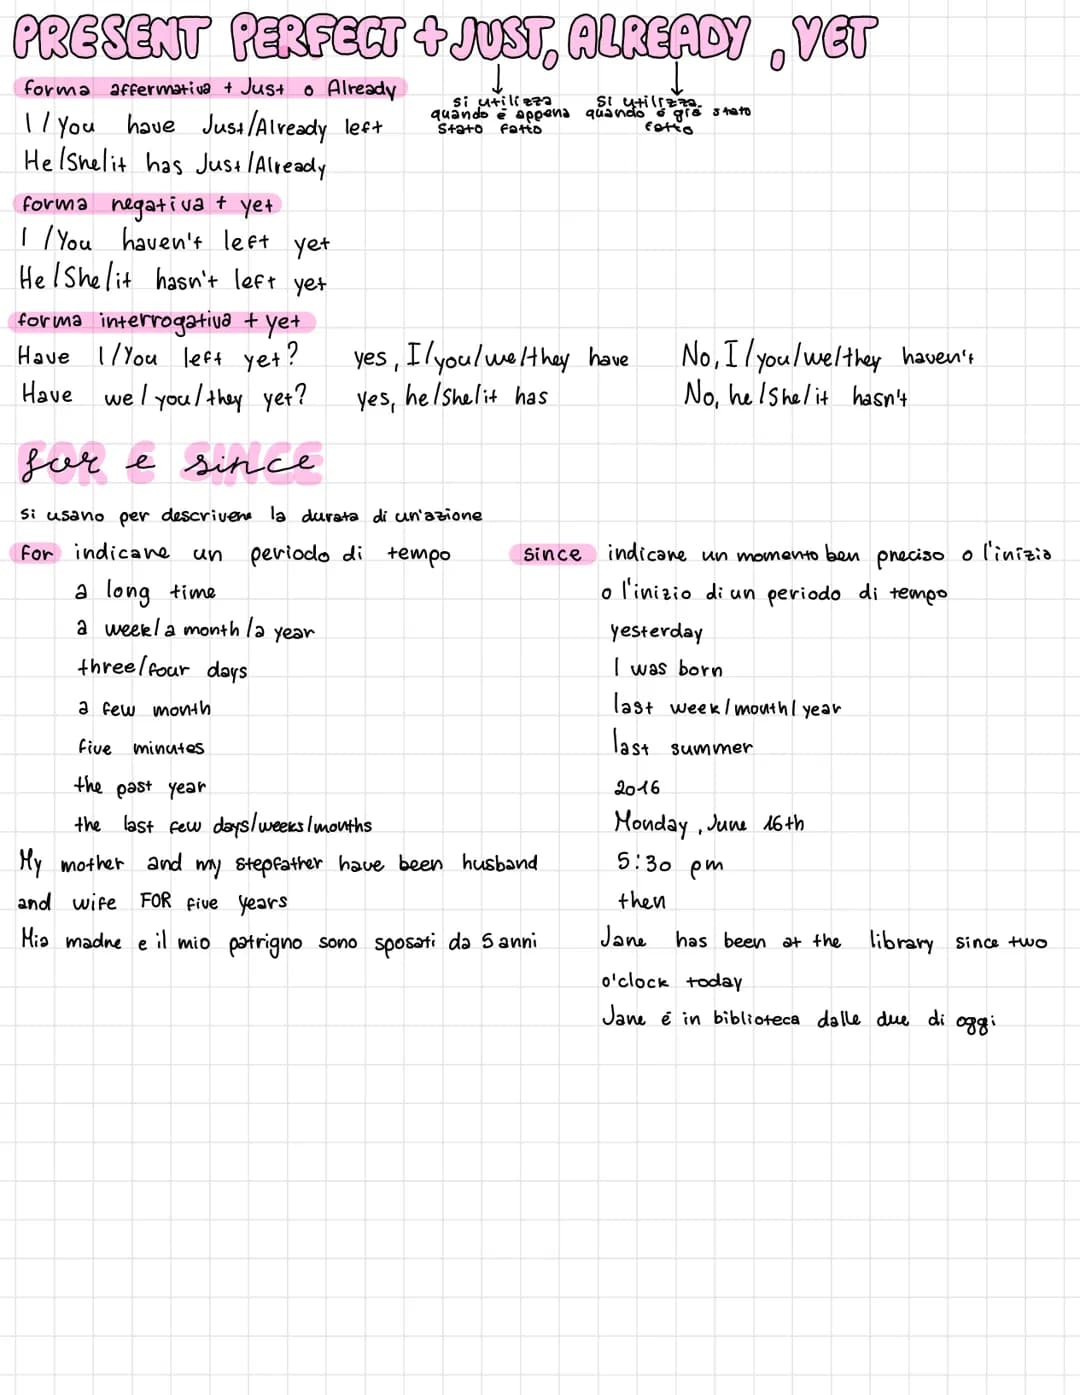 PRESENT PERFECT + JUST, ALREADY, YET
forma affermativa + Just o Already
si utilizza quando è appena stato fatto
si utilizza quando è già stato fatto
I / You have Just/Already left
He/She/it has Just/Already
forma negativa + yet
I / You haven't left yet
He/She/it hasn't left yet
forma interrogativa + yet
Have I/You left yet? yes, I/you/we/they have No, I/you/we/they haven't
Have we/you/they yet? yes, he/She/it has No, he/She/it hasn't
for e since
si usano per descrivere la durata di un'azione
for indicare un periodo di tempo
a long time
a week/a month/a year
three/four days
a few month
five minutes
the past year
the last few days/weeks/months
My mother and my stepfather have been husband
and wife FOR five years
Mia madre e il mio patrigno sono sposati da 5 anni
since indicare un momento ben preciso o l'inizio
o l'inizio di un periodo di tempo
yesterday
I was born
last week/month/year
last summer
2016
Monday, June 16th
5:30 pm
then
Jane has been at the library since two
o'clock today
Jane è in biblioteca dalle due di oggi